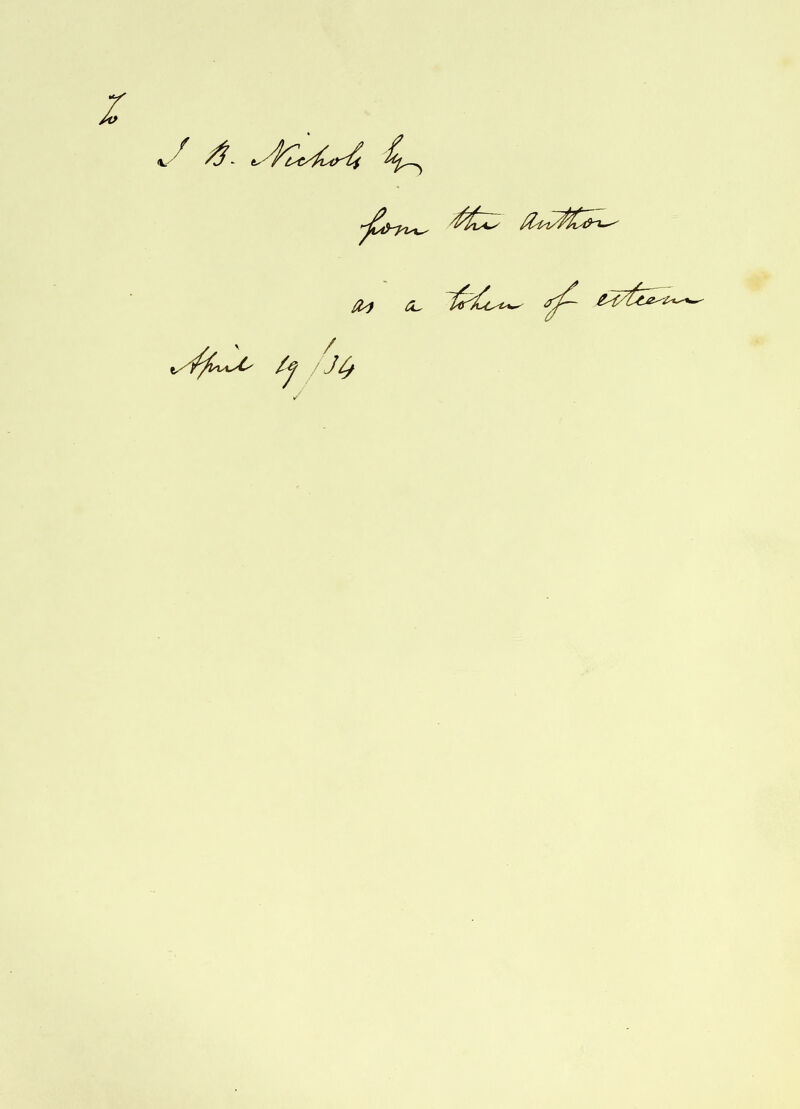 To
J B. Nichols Esq
from the Author
as a token of esteem
April 19/34